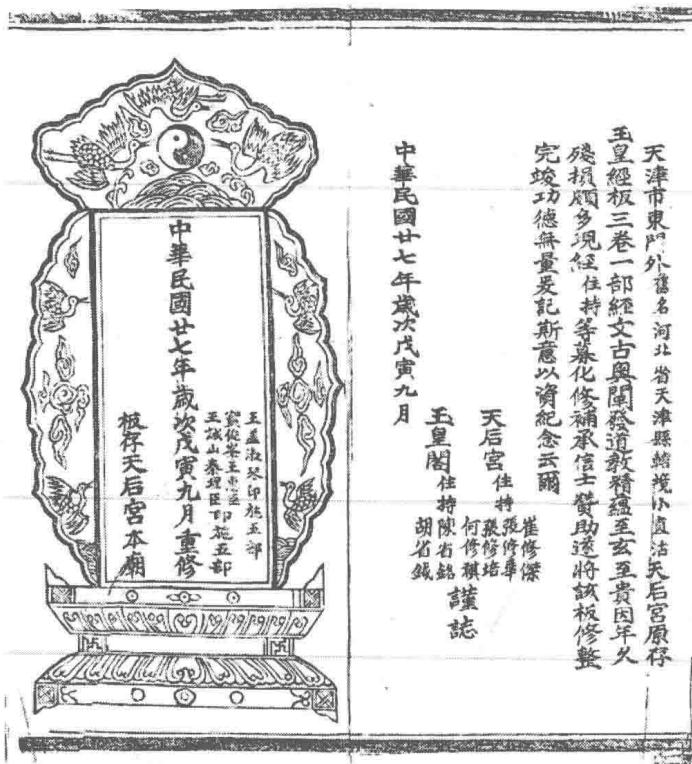 天津市東門外舊名河北省天津縣轄境小直沽天后宮原存
玉皇經板三卷一部經文古奧闡發道教精蘊至玄至貴因年久
殘損頗多現經住持等募化修補承信士贊助遂將該板修整
完竣功德無量爰記斯意以資紀念云爾
天后宮住持
崔修傑
張修華
張修培
何修祺
玉皇閣住持
陳省銘
胡省鉞
謹誌
中華民國廿七年歲次戊寅九月
王孟淑琴印施五部
王誠山秦理臣印施五部
中華民國廿七年歲次戊寅九月重修
板存天后宮本廟